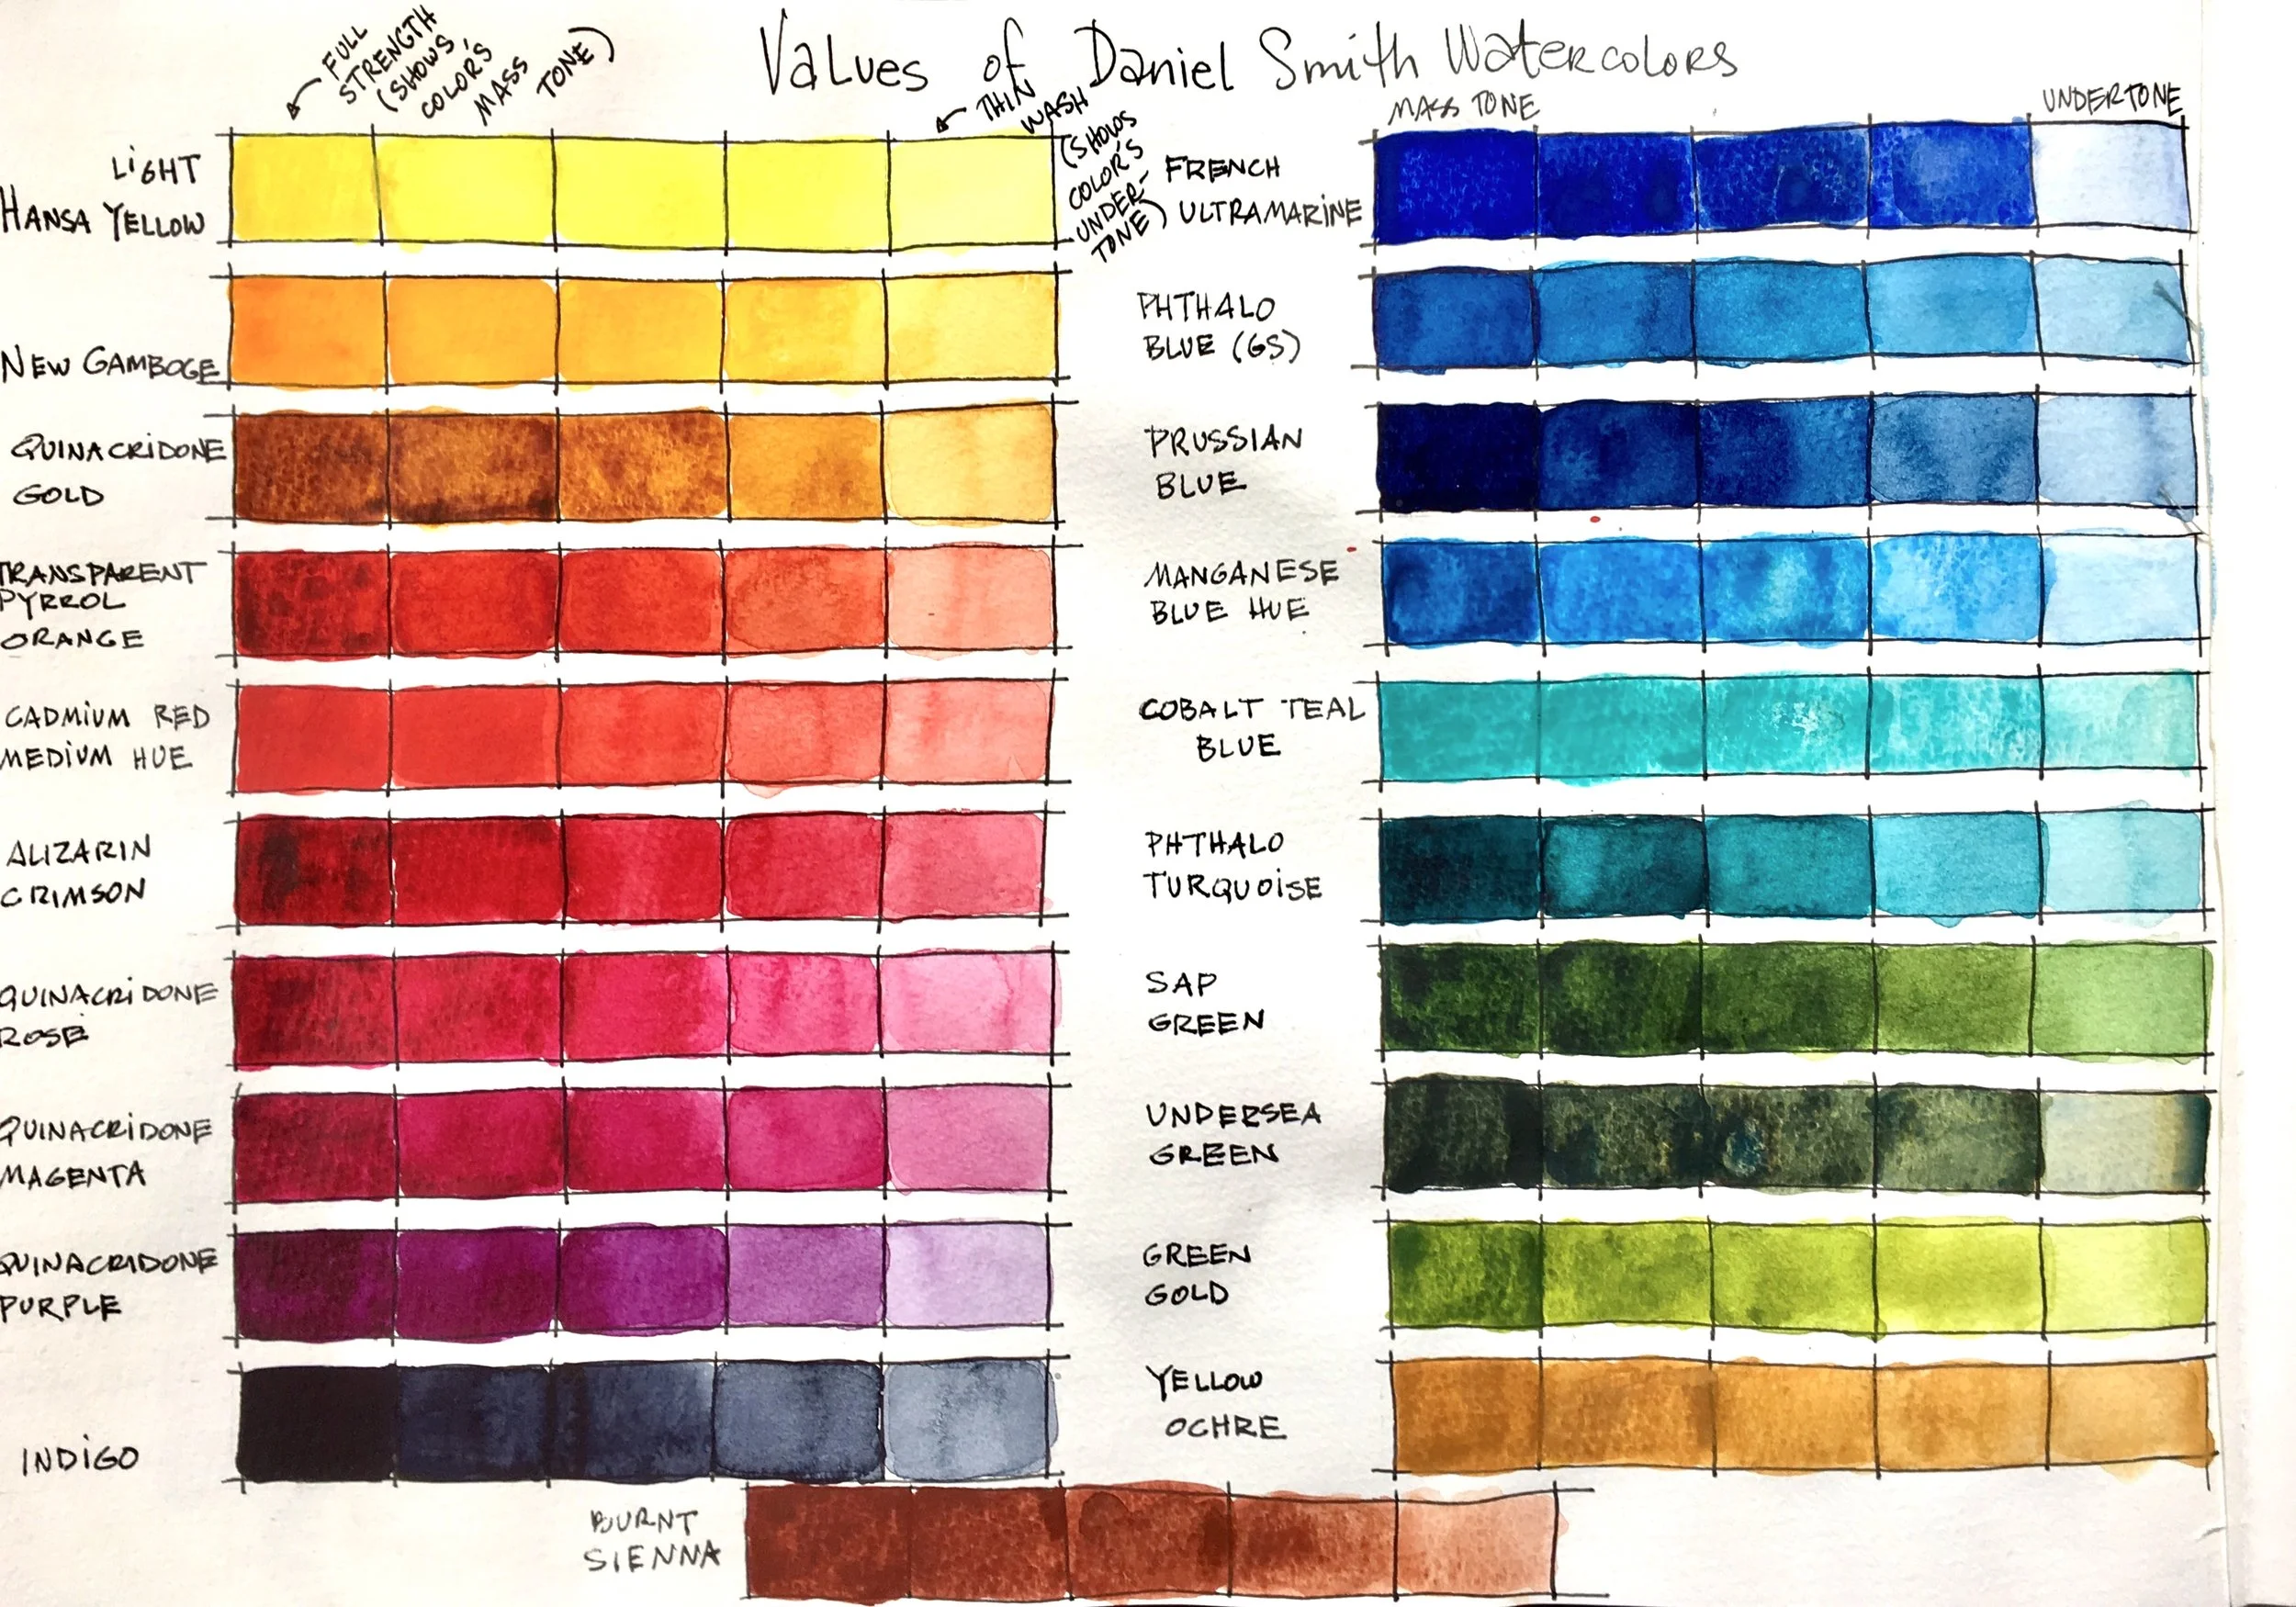 Values of Daniel Smith Watercolors
FULL
STRENGTH
(SHOWS
COLOR'S
MASS
TONE)
THIN
WASH
(SHOWS
COLOR'S
UNDER-
TONE)
LIGHT
HANSA YELLOW
NEW GAMBOGE
QUINACRIDONE
GOLD
TRANSPARENT
PYRROL
ORANGE
CADMIUM RED
MEDIUM HUE
ALIZARIN
CRIMSON
QUINACRIDONE
ROSE
QUINACRIDONE
MAGENTA
QUINACRIDONE
PURPLE
INDIGO
MASS TONE
UNDERTONE
FRENCH
ULTRAMARINE
PHTHALO
BLUE (GS)
PRUSSIAN
BLUE
MANGANESE
BLUE HUE
COBALT TEAL
BLUE
PHTHALO
TURQUOISE
SAP
GREEN
UNDERSEA
GREEN
GREEN
GOLD
YELLOW
OCHRE
BURNT
SIENNA